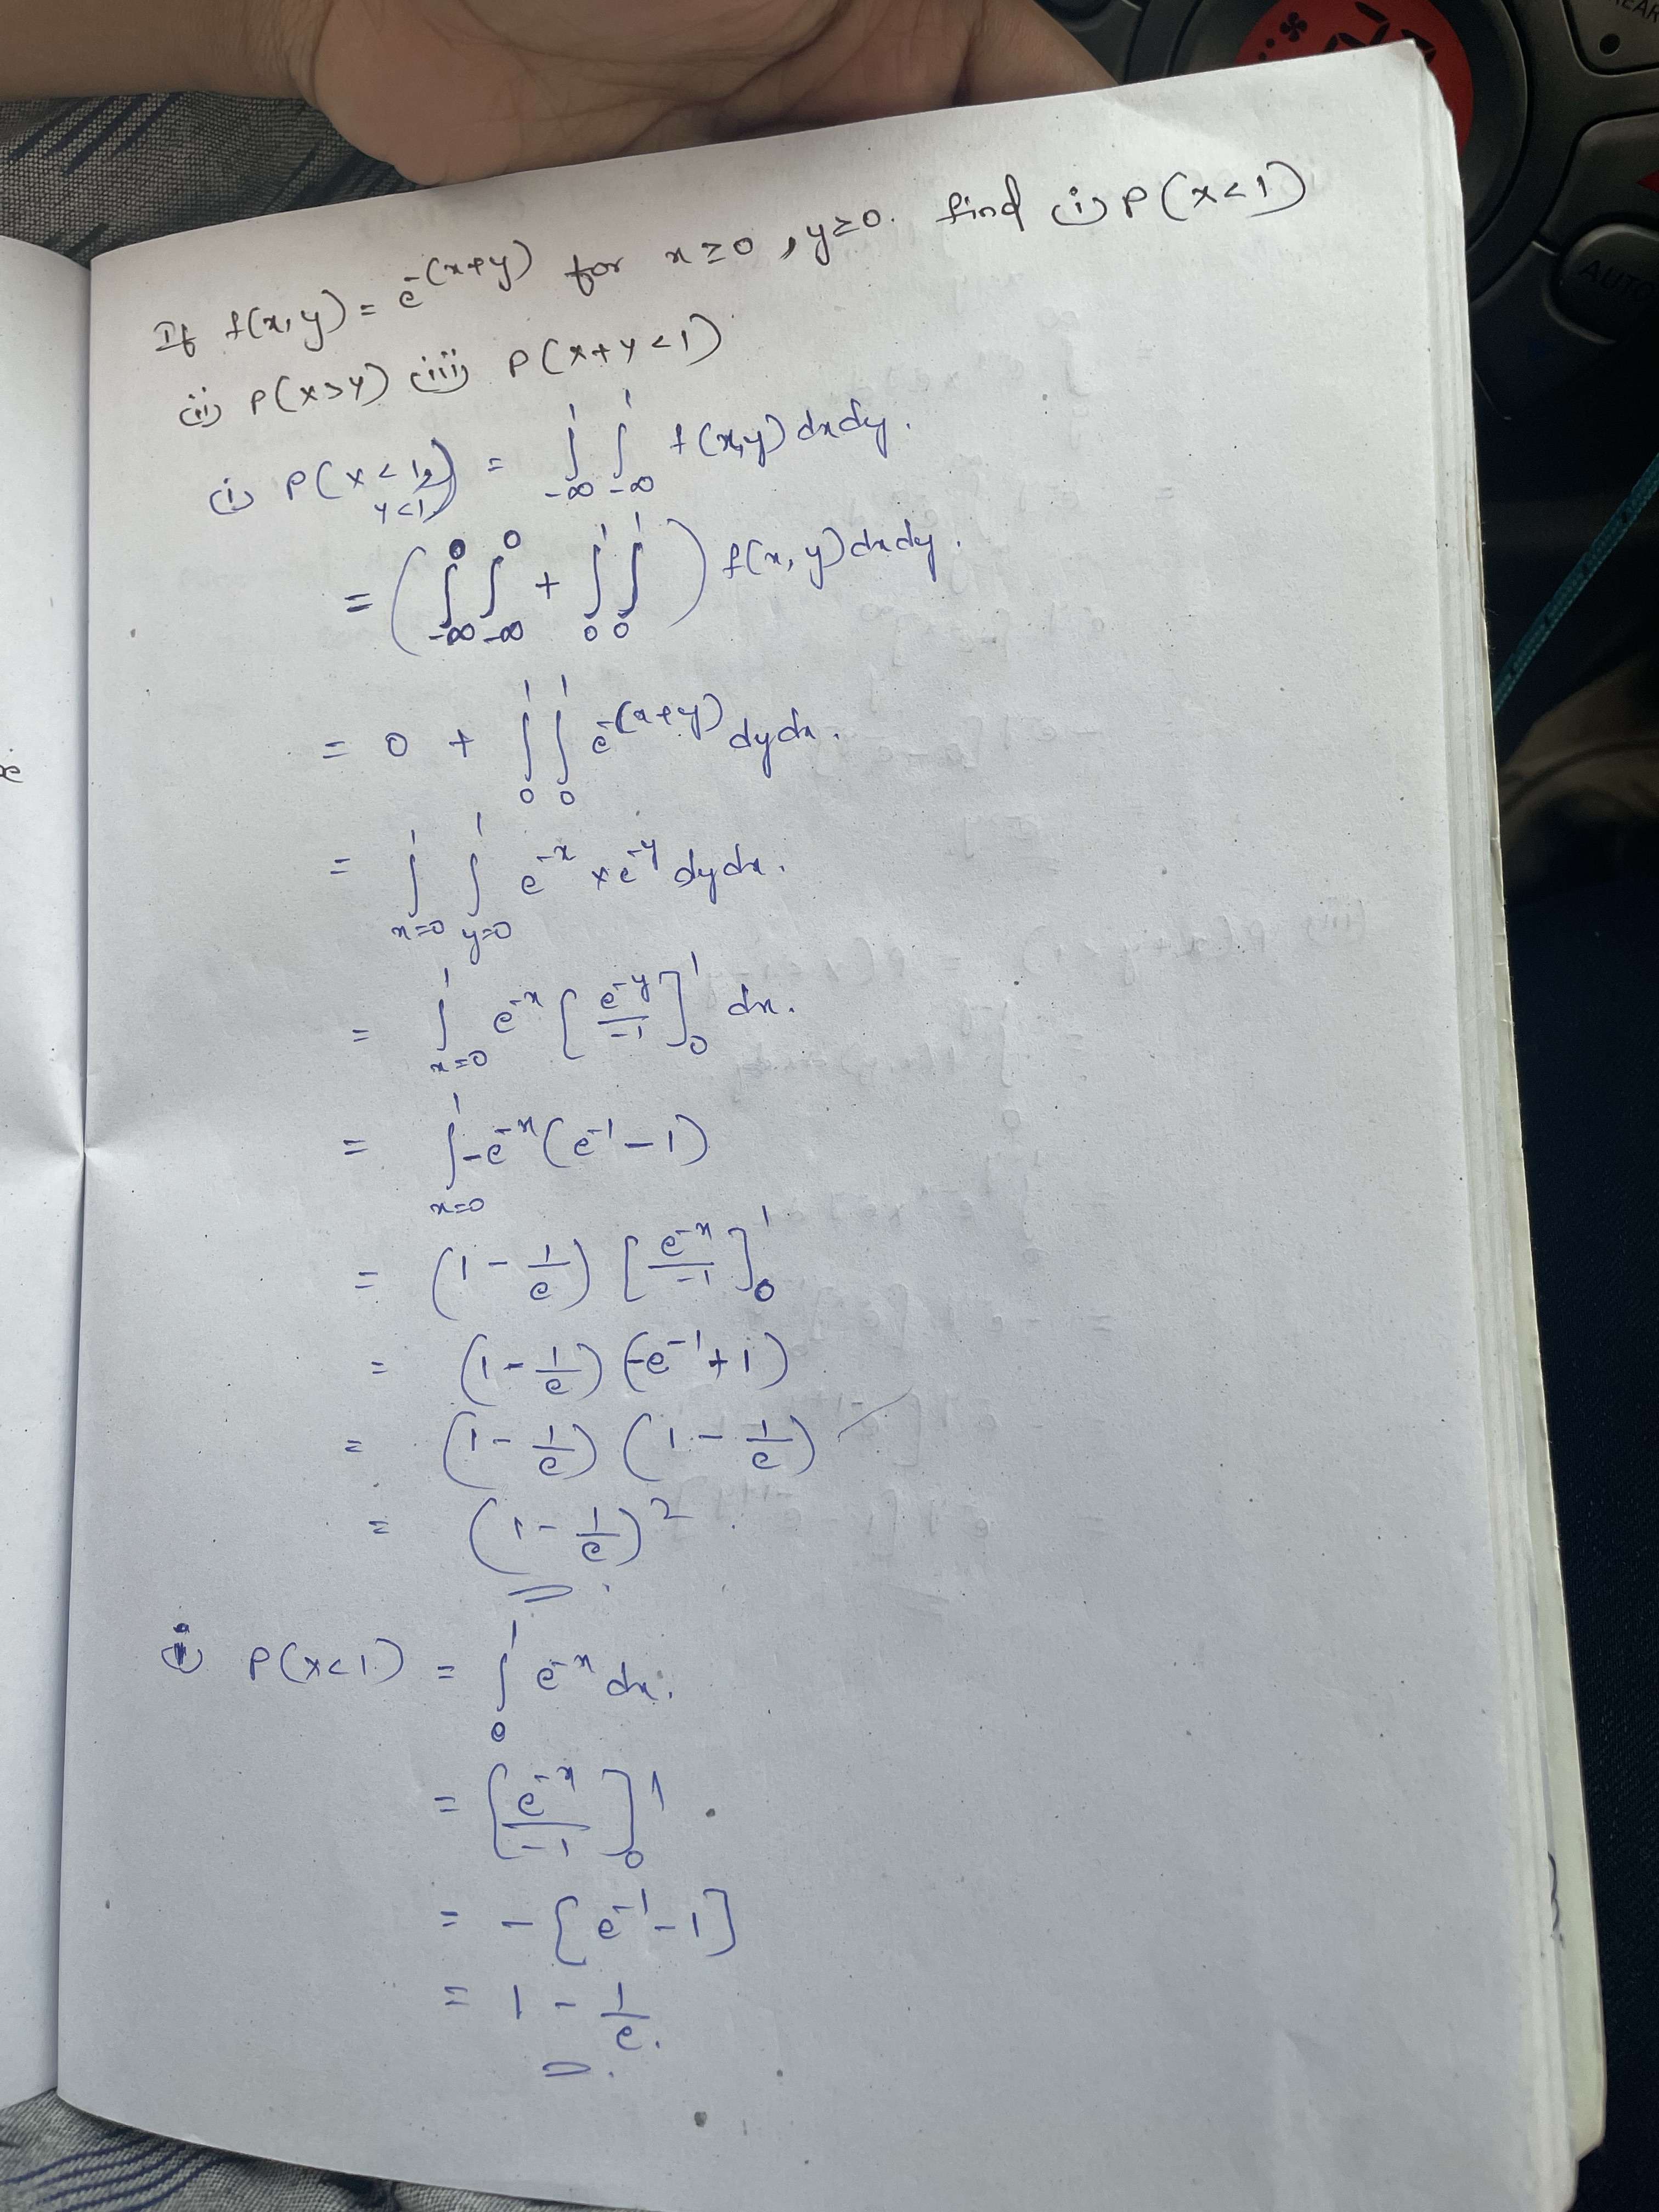 If f(x,y) = e^-(x+y) for x≥0, y≥0. find (i) P(x<1)
(ii) P(x>y) (iii) P(x+y<1)
(i) P(x<1, y<1) = ∫_{-∞}^{1} ∫_{-∞}^{1} f(x,y) dxdy.
= (∫_{-∞}^{0} ∫_{-∞}^{0} + ∫_{0}^{1} ∫_{0}^{1}) f(x,y) dxdy.
= 0 + ∫_{0}^{1} ∫_{0}^{1} e^-(x+y) dydx.
= ∫_{x=0}^{1} ∫_{y=0}^{1} e^-x × e^-y dydx.
= ∫_{x=0}^{1} e^-x [e^-y / -1]_{0}^{1} dx.
= ∫_{x=0}^{1} -e^-x (e^-1 - 1)
= (1 - 1/e) [e^-x / -1]_{0}^{1}
= (1 - 1/e) (-e^-1 + 1)
= (1 - 1/e) (1 - 1/e)
= (1 - 1/e)^2.
(i) P(x<1) = ∫_{0}^{1} e^-x dx.
= [e^-x / -1]_{0}^{1}
= -[e^-1 - 1]
= 1 - 1/e.
AUTO